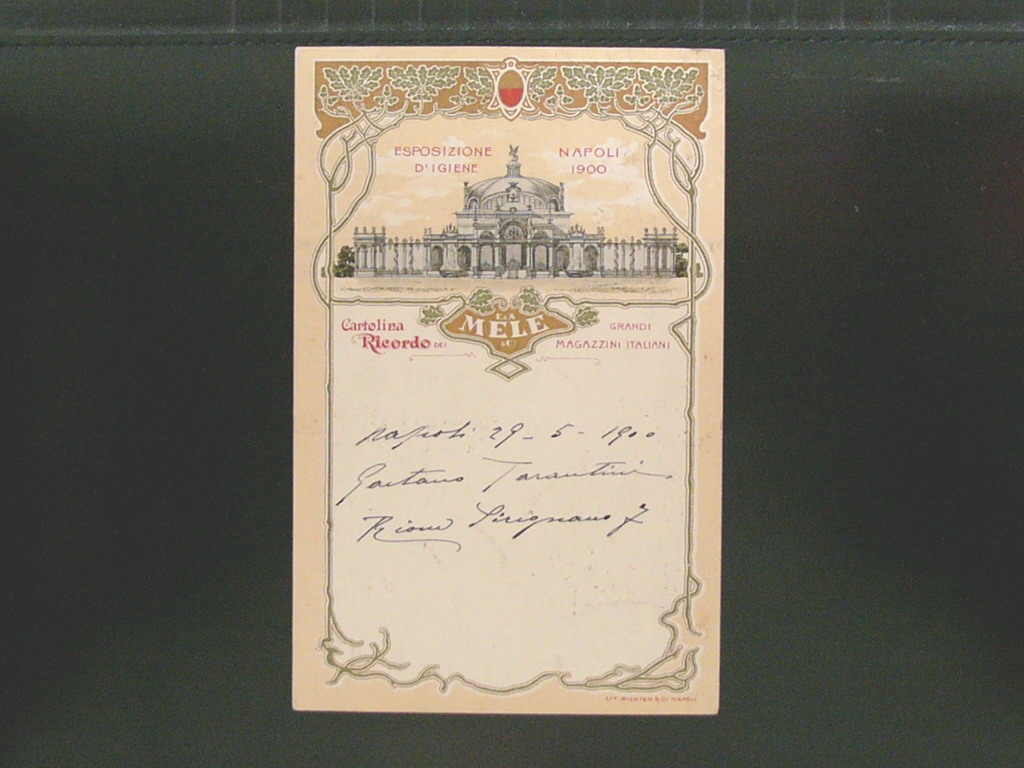 ESPOSIZIONE NAPOLI
D'IGIENE 1900
MELE
Cartolina GRANDI
Ricordo DEI MAGAZZINI ITALIANI
Napoli 29-5-1900
Gaetano Tarantini
Rione Sirignano 7
LIT. RICHTER & C. NAPOLI